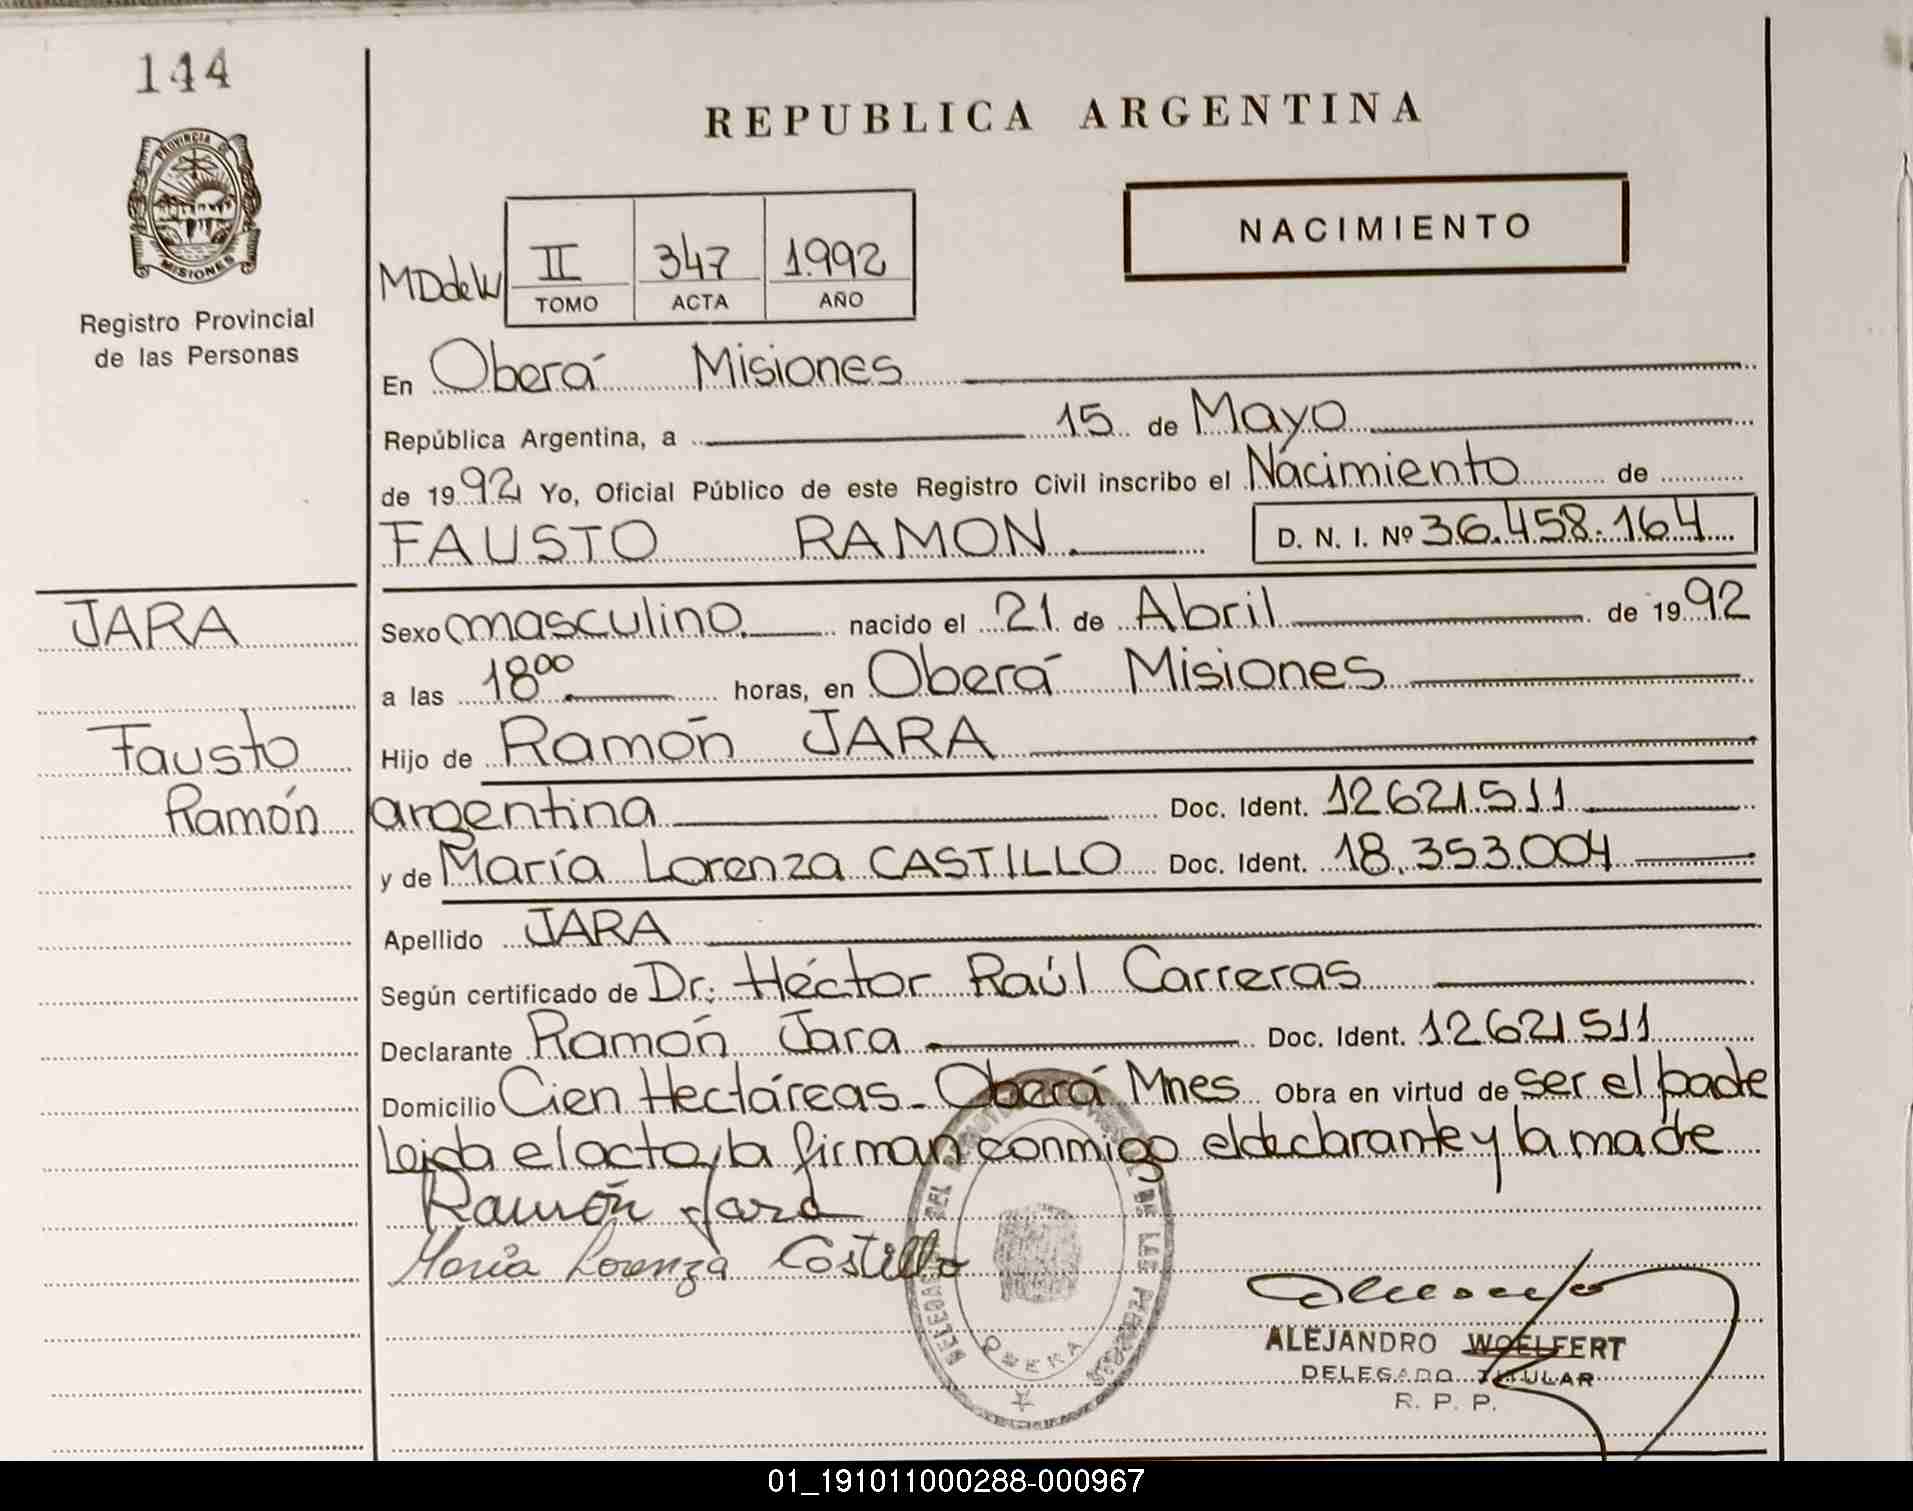 144
PROVINCIA DE
MISIONES
Registro Provincial
de las Personas
REPUBLICA ARGENTINA
NACIMIENTO
MDdeW
II 347 1992
TOMO ACTA AÑO
En Oberá Misiones
República Argentina, a 15 de Mayo
de 1992 Yo, Oficial Público de este Registro Civil inscribo el Nacimiento de
FAUSTO RAMON D. N. I. Nº 36.458.164
JARA
Sexo masculino nacido el 21 de Abril de 1992
a las 18⁰⁰ horas, en Oberá Misiones
Fausto
Ramón
Hijo de Ramón JARA
argentina Doc. Ident. 12621511
y de María Lorenza CASTILLO Doc. Ident. 18.353.004
Apellido JARA
Según certificado de Dr: Héctor Raúl Carreras
Declarante Ramón Jara Doc. Ident. 12621511
Domicilio Cien Hectáreas - Oberá Mnes Obra en virtud de ser el padre
leida el acta, la firman conmigo el declarante y la madre
Ramón Jara
María Lorenza Castillo
OBERA
ALEJANDRO WOELFERT
DELEGADO TITULAR
R. P. P.
01_191011000288-000967